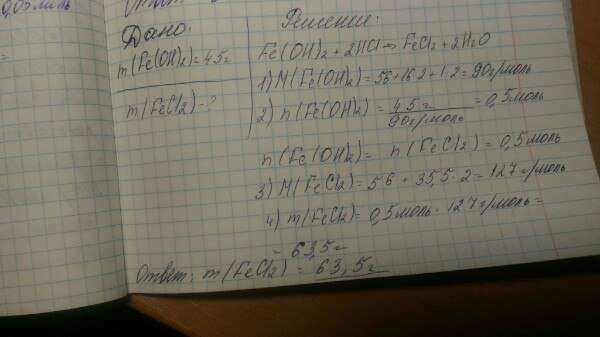 0,05 моль
Дано:
m(Fe(OH)₂)=45г
m(FeCl₂)-?
Решение:
Fe(OH)₂+2HCl→FeCl₂+2H₂O
1) M(Fe(OH)₂)=56+16·2+1·2=90г/моль
2) n(Fe(OH)₂)=45г/90г/моль=0,5моль
n(Fe(OH)₂)= n(FeCl₂)=0,5моль
3) M(FeCl₂)=56+35,5·2=127г/моль
4) m(FeCl₂)=0,5моль·127г/моль=
=63,5г
Ответ: m(FeCl₂)=63,5г